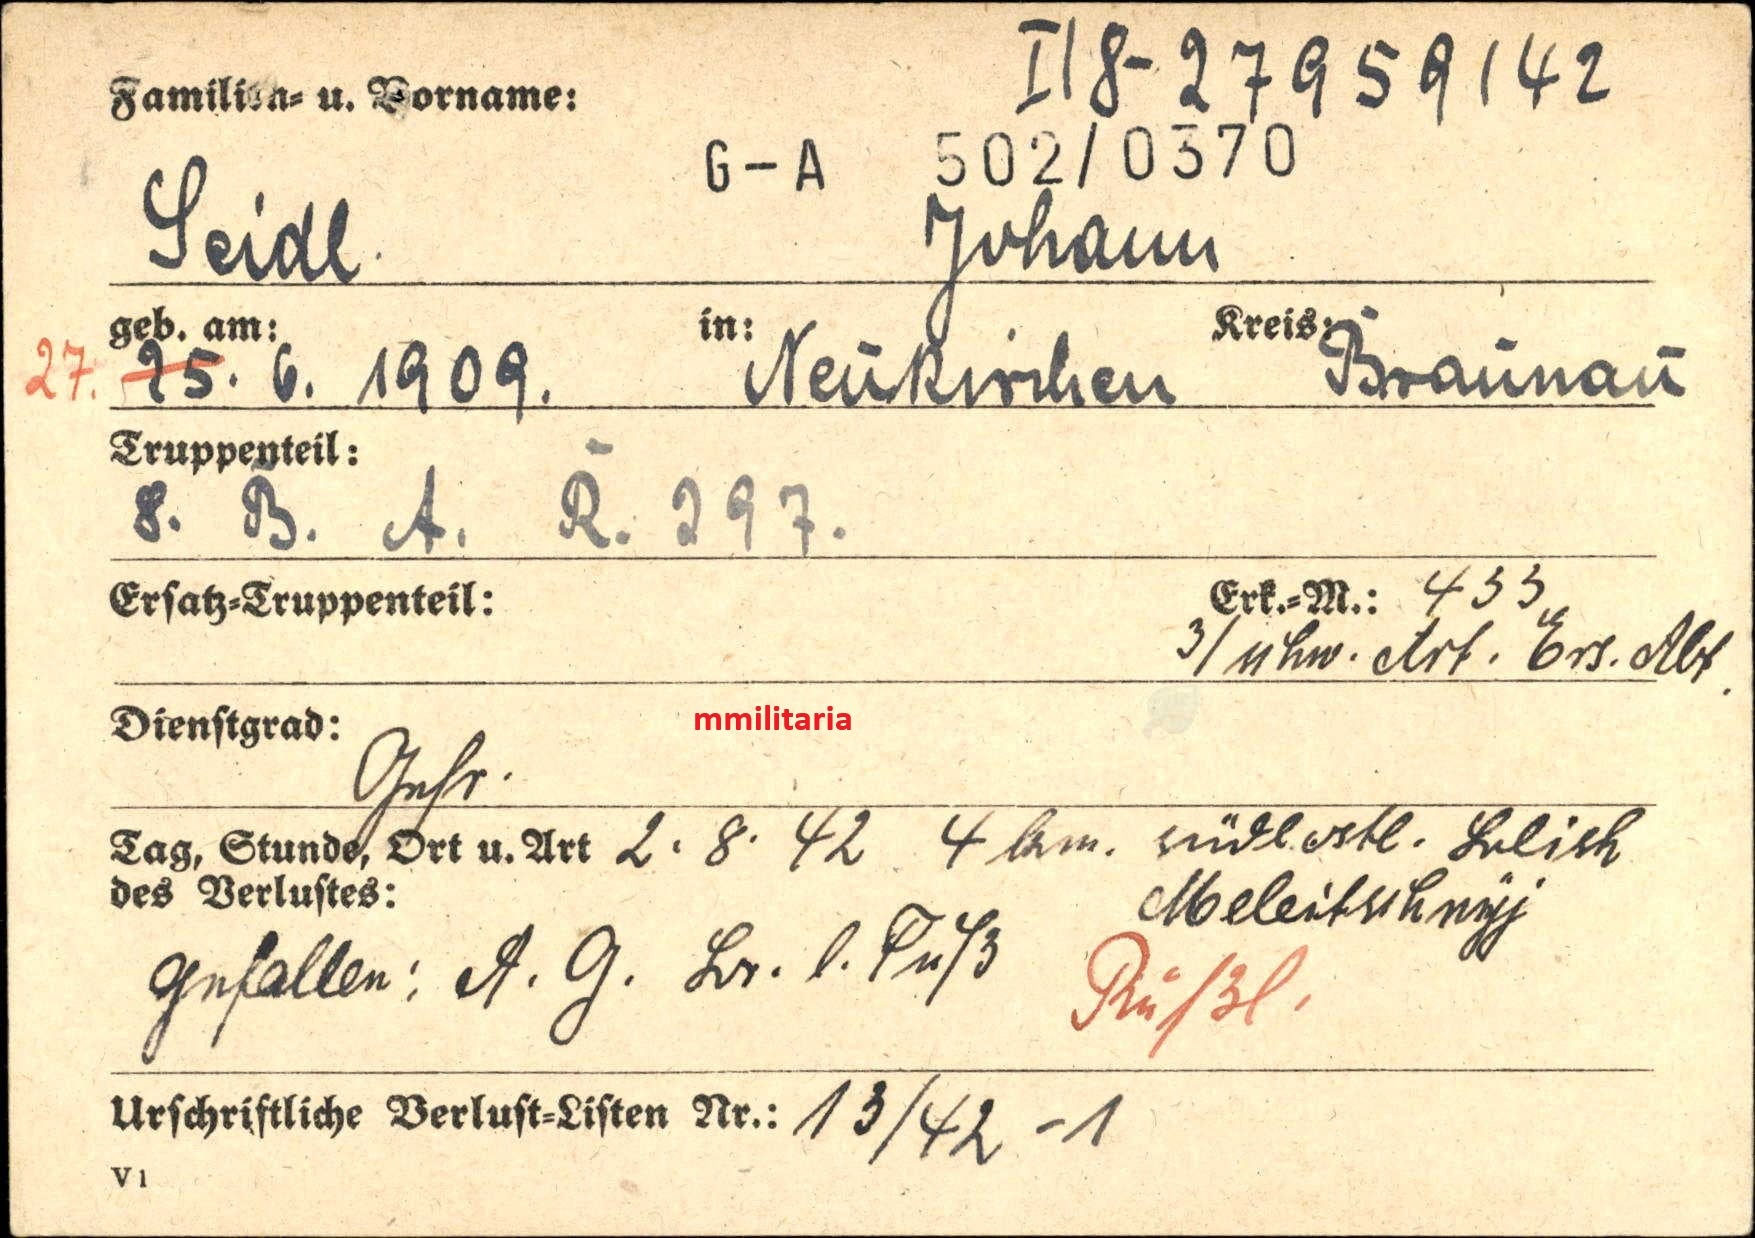 II8-27959/42
Familien- u. Vorname:
G-A 502/0370
Seidl Johann
geb. am: in: Kreis:
27. 25. 6. 1909. Neukirchen Braunau
Truppenteil:
8. B. A. R. 297.
Ersatz-Truppenteil: Erk.-M.: 433
3/ Art. Ers. Abt.
Dienstgrad:
mmilitaria
Gefr.
Tag, Stunde, Ort u. Art 2. 8. 42 4 km. südl. ostl.
des Verlustes:
gefallen: A. G. l. Fuß
Urschriftliche Verlust-Listen Nr.: 13/42 -1
V 1